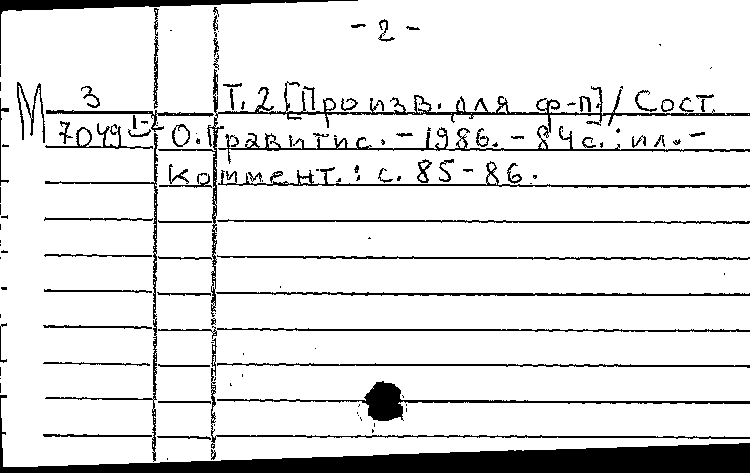 - 2 -
М 3 Т. 2 [Произв. для ф-п] / Сост.
7049 1-2 О. Гравитис. - 1986. - 84 с. : ил. -
Коммент. : с. 85-86.